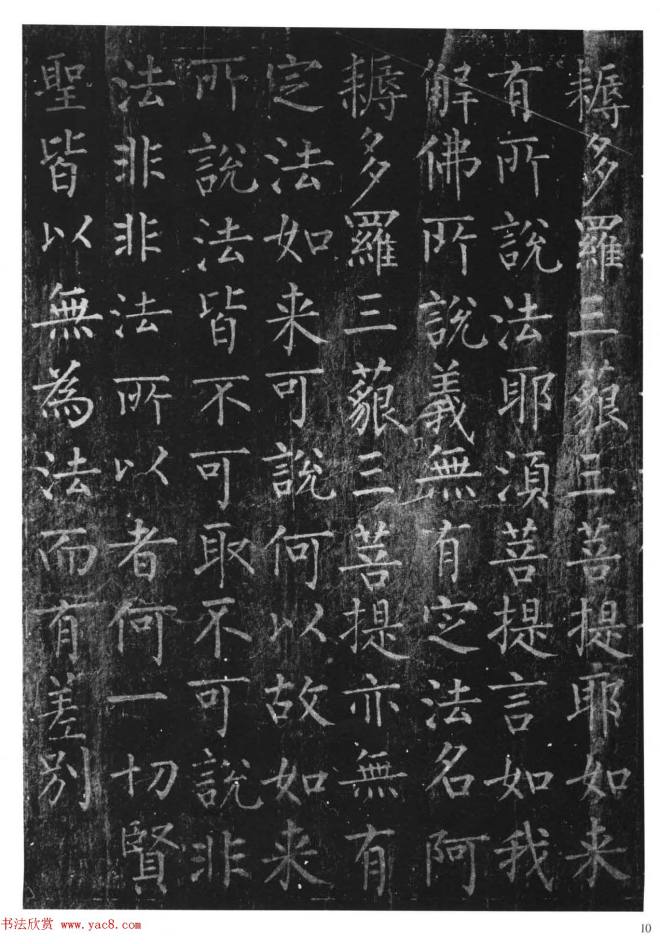 耨多羅三藐三菩提耶如来
有所說法耶湏菩提言如我
解佛所說義無有定法名阿
耨多羅三藐三菩提亦無有
定法如来可說何以故如来
所說法皆不可取不可說非
法非非法所以者何一切賢
聖皆以無為法而有差别
书法欣赏 www.yac8.com
10